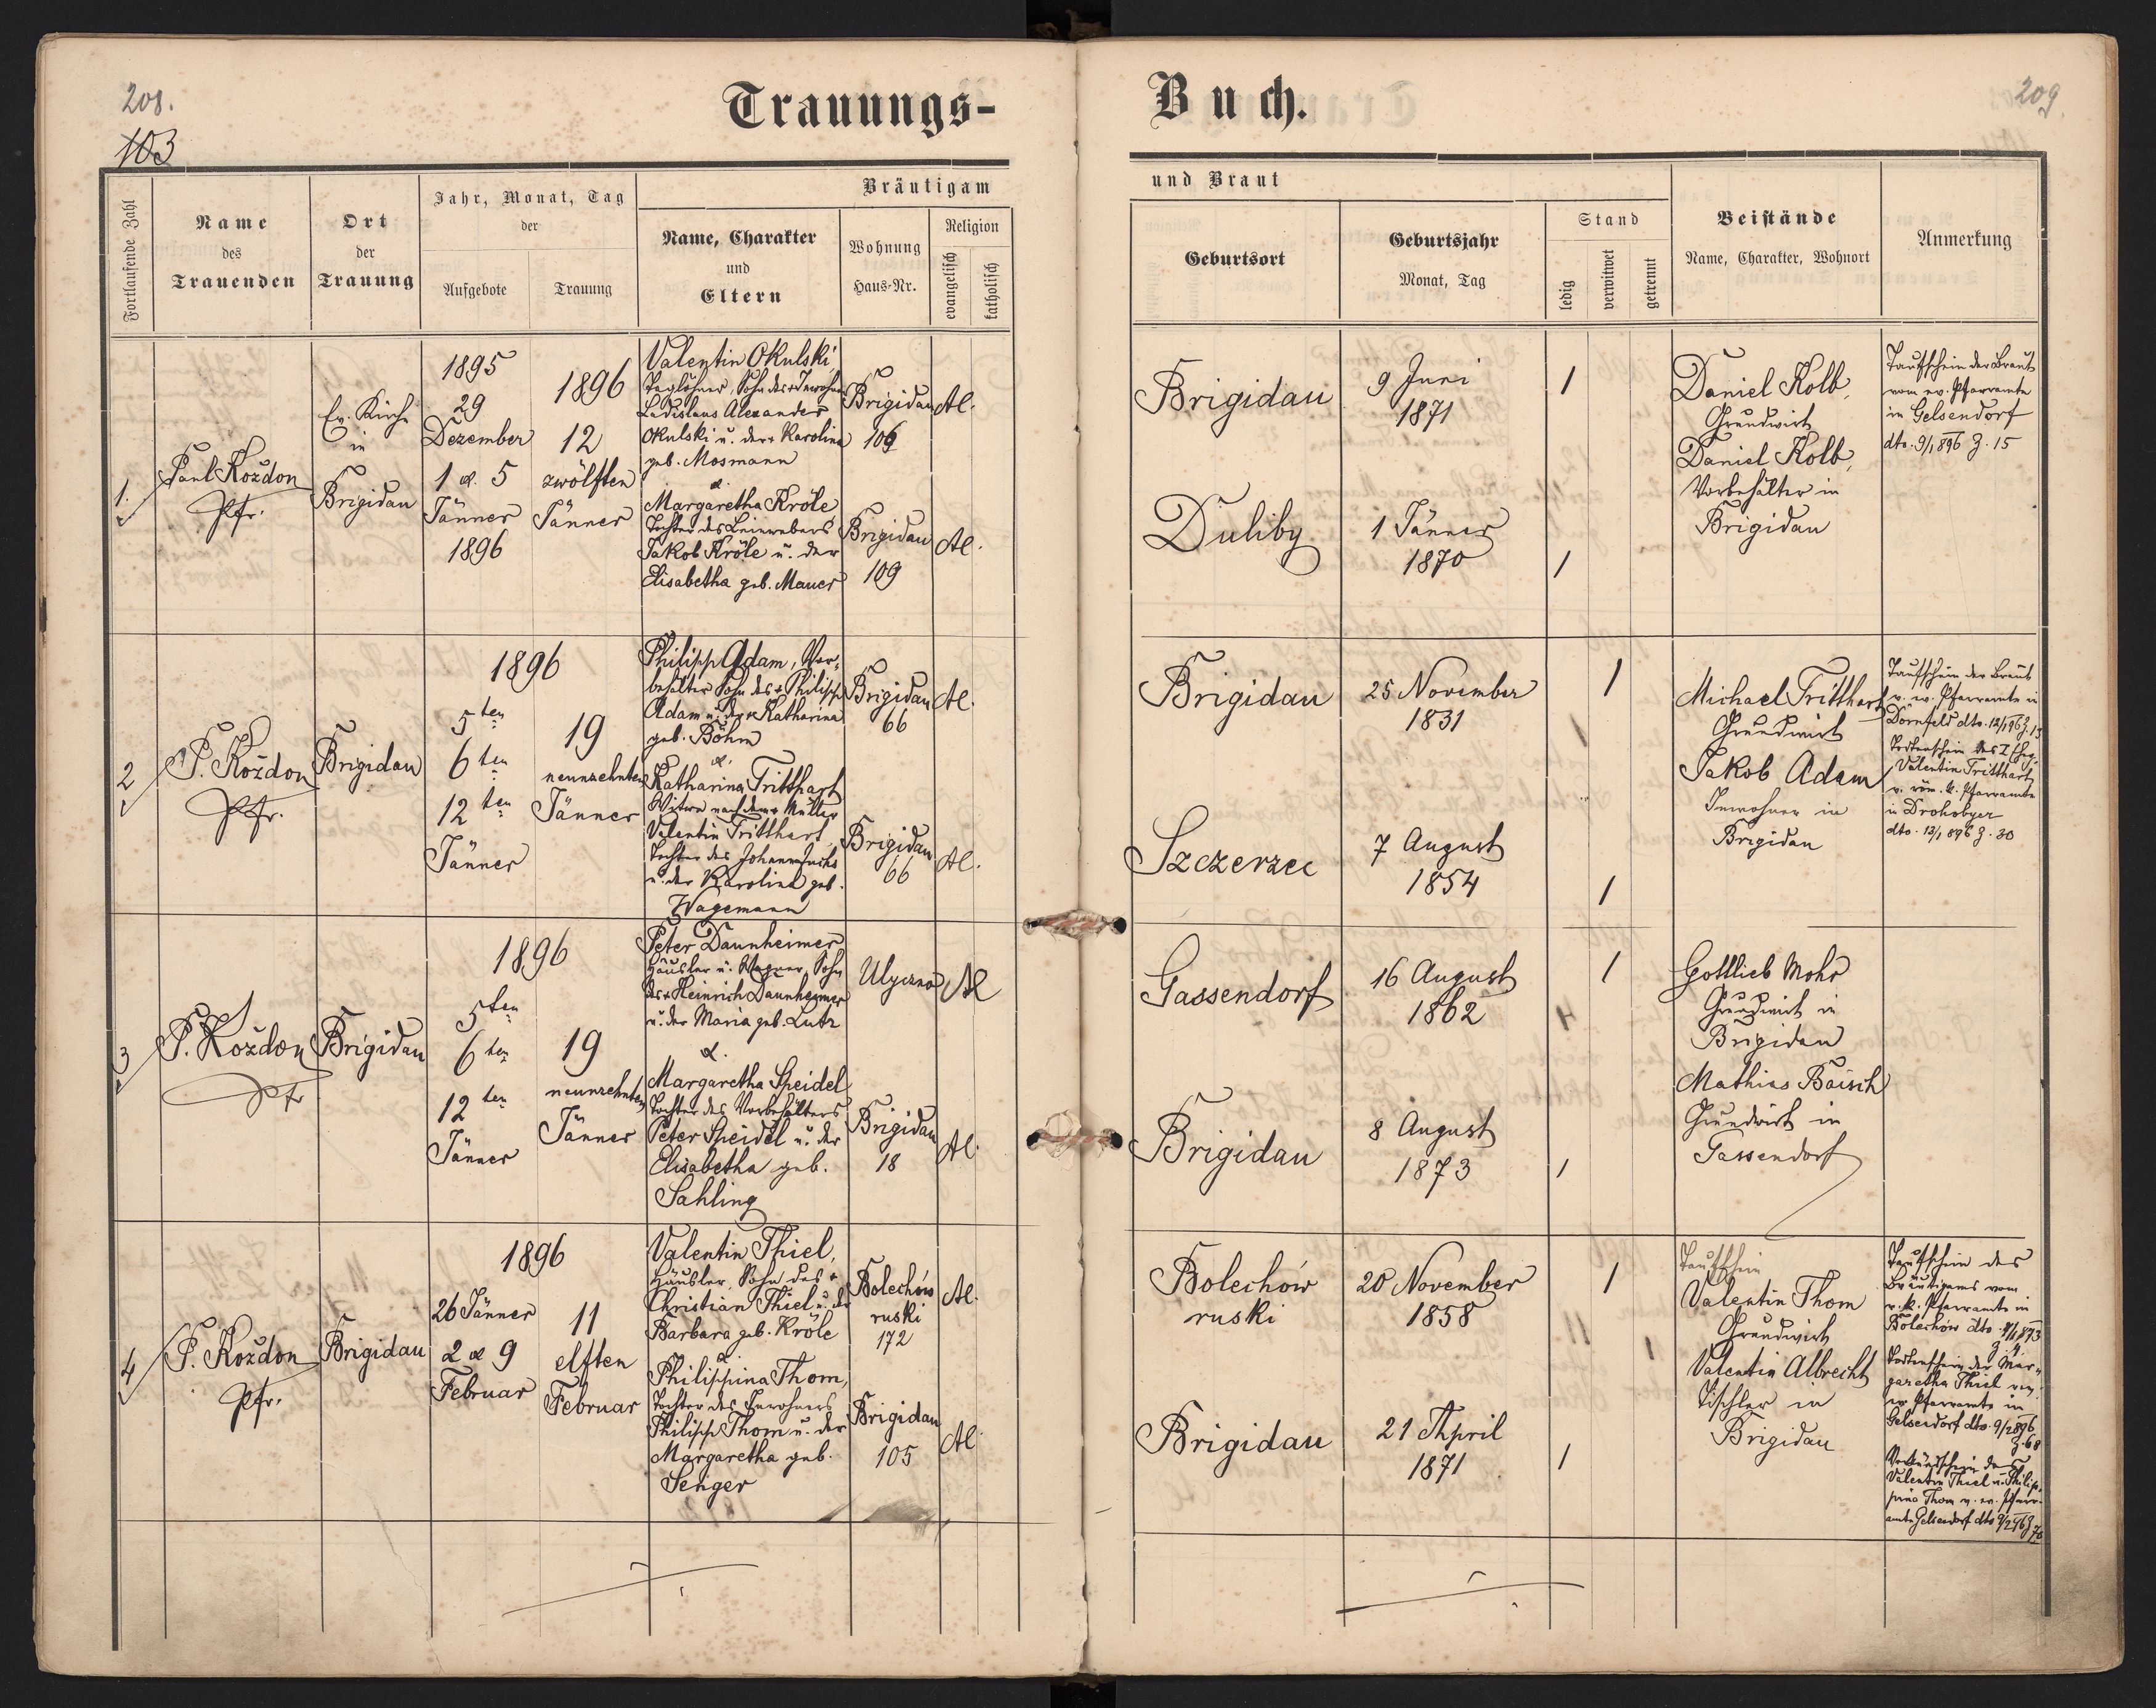 208.
103
Trauungs-
Buch.
209
Fortlaufende Zahl
Name
des
Trauenden
Ort
der
Trauung
Jahr, Monat, Tag
der
Aufgebote
Trauung
Bräutigam
Name, Charakter
und
Eltern
Wohnung
Haus-Nr.
Religion
evangelisch
katholisch
und Braut
Geburtsort
Geburtsjahr
Monat, Tag
Stand
ledig
verwitwet
getrennt
Beistände
Name, Charakter, Wohnort
Anmerkung
1.
Paul Koždon
Pfr.
Ev. Kirche
in
Brigidau
1895
29
Dezember
1 & 5
Jänner
1896
1896
12
zwölften
Jänner
Valentin Okulski,
Taglöhner, Sohn des + Inwohn
Ladislaus Alexander
Okulski u. der + Karolina
geb. Mosmann
&
Margaretha Kröle
Tochter des Leinwebers
Jakob Kröle u. der
Elisabetha geb. Mauer
Brigidau
106
Brigidau
109
AC.
AC.
Brigidau
Duliby
9 Juni
1871
1 Jänner
1870
1
1
Daniel Kolb,
Grundwirt
Daniel Kolb,
Vorbehälter in
Brigidau
Taufschein der Braut
vom ev. Pfarramte
in Gelsendorf
dto. 9/1 896 Z. 15
2
P. Koždon
Pfr.
Brigidau
1896
5ten
6ten
12ten
Jänner
19
neunzehnten
Jänner
Philipp Adam, Vor-
behälter Sohn des + Philipp
Adam u. der + Katharina
geb. Böhm
&
Katharina Tritthart
Witwe nach dem + Müller
Valentin Tritthart,
Tochter des Johann Fuchs
u. der Karolina geb.
Wagemann
Brigidau
66
Brigidau
66
AC.
AC.
Brigidau
Szczerzec
25 November
1831
7 August
1854
1
1
Michael Tritthart
Grundwirt
Jakob Adam
Inwohner in
Brigidau
Taufschein der Braut
v. ev. Pfarramte in
Dornfeld dto. 12/1 96 Z. 13
Todtenschein des
Valentin Tritthart
v. röm. k. Pfarramte
in Drohobycz
dto. 13/1 896 Z. 30
3
P. Koždon
Pfr
Brigidau
1896
5ten
6ten
12ten
Jänner
19
neunzehnten
Jänner
Peter Daunheimer
Häusler u. Wagner, Sohn
des + Heinrich Daunheimer
u. der Maria geb. Lutz
&.
Margaretha Speidel
Tochter des Vorbehälters
Peter Speidel u. der
Elisabetha geb.
Sahling
Ulyczno
Brigidau
18
AC
AC.
Gassendorf
Brigidau
16 August
1862
8 August
1873
1
1
Gottlieb Mohr
Grundwirt in
Brigidau
Mathias Baisch
Grundwirt in
Gassendorf
4
P. Koždon
Pfr.
Brigidau
1896
26 Jänner
2 & 9
Februar
11
elften
Februar
Valentin Thiel,
Häusler, Sohn des +
Christian Thiel u. der
Barbara geb. Kröle
&
Philippina Thom,
Tochter des Inwohners
Philipp Thom u. der
Margaretha geb.
Senger
Bolechów
ruski
172
Brigidau
105
AC.
AC.
Bolechów
ruski
Brigidau
20 November
1858
21 April
1871
1
1
Taufschein
Valentin Thom
Grundwirt
Valentin Albrecht
Tischler in
Brigidau
Taufschein des
Bräutigams vom
r. k. Pfarramte in
Bolechów dto.
Todtenschein der Mar-
garetha Thiel vom
ev. Pfarramte in
Gelsendorf dto. 9/2 896
Z. 68
Verkündschein des
Valentin Thiel u. Philip-
pina Thom v. ev. Pfarr-
amte Gelsendorf dto 9/2 96 Z 70